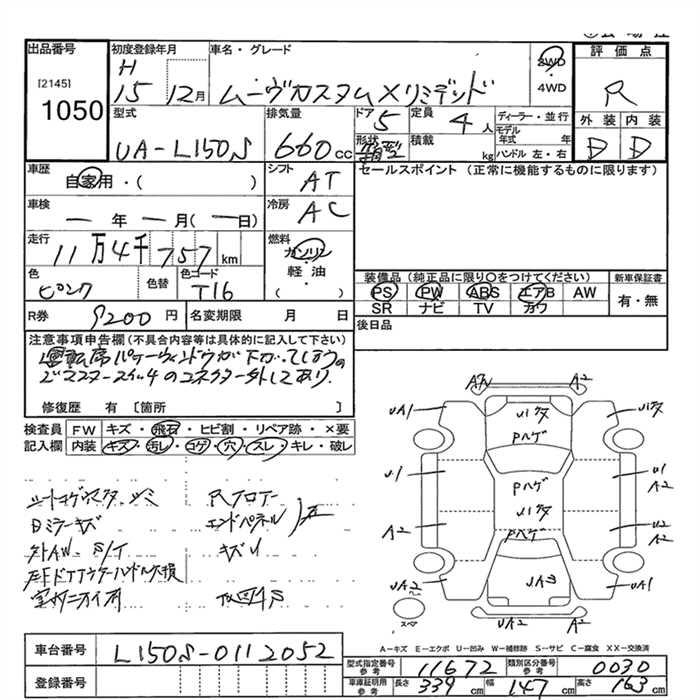 出品番号
[2145]
1050
初度登録年月
H
15 12月
車名・グレード
ムーヴカスタムXリミテッド
2WD
・
4WD
評価点
R
外装 内装
D D
型式
UA-L150S
排気量
660cc
ドア
5
定員
4人
ディーラー・並行
モデル
年式 年
ハンドル 左・右
形状
箱型
積載
kg
車歴
自家用・( )
シフト
AT
セールスポイント (正常に機能するものに限ります)
車検
ー年ー月(ー日)
冷房
AC
走行
11万4千757km
燃料
ガソリン
・
軽油
・
( )
色
ピンク
色替
色コード
T16
装備品 (純正品に限り○をつけてください)
PS PW ABS エアB AW
SR ナビ TV カワ
新車保証書
有・無
R券
9200円
名変期限 月 日
後日品
注意事項申告欄(不具合内容等は具体的に記入して下さい)
運転席パワーウィンドウが下がってしまうの
でマスタースイッチのコネクター外してあり.
修復歴 有 〔箇所 〕
検査員
記入欄
FW キズ・飛石・ヒビ割・リペア跡・×要
内装 キズ・汚レ・コゲ・穴・スレ・キレ・破レ
シートコゲ
Rフロアー
エンドパネル
キズU
外AW. S/T
下回りS
A1 A2
UA1
U1タ
U1タ
Pハゲ
U1
Pハゲ
U1
A2
A2
U1タ
U2
A2
Pハゲ
UA2
UA3
UA1
スペア
UA2 A2
A-キズ E-エクボ U-凹み W-補修跡 S-サビ C-腐食 XX-交換済
車台番号
L150S-0112052
登録番号
型式指定番号
参考
11672
類別区分番号
参考
0030
車庫証明用
参考
長さ
339cm
幅
147cm
高さ
163cm